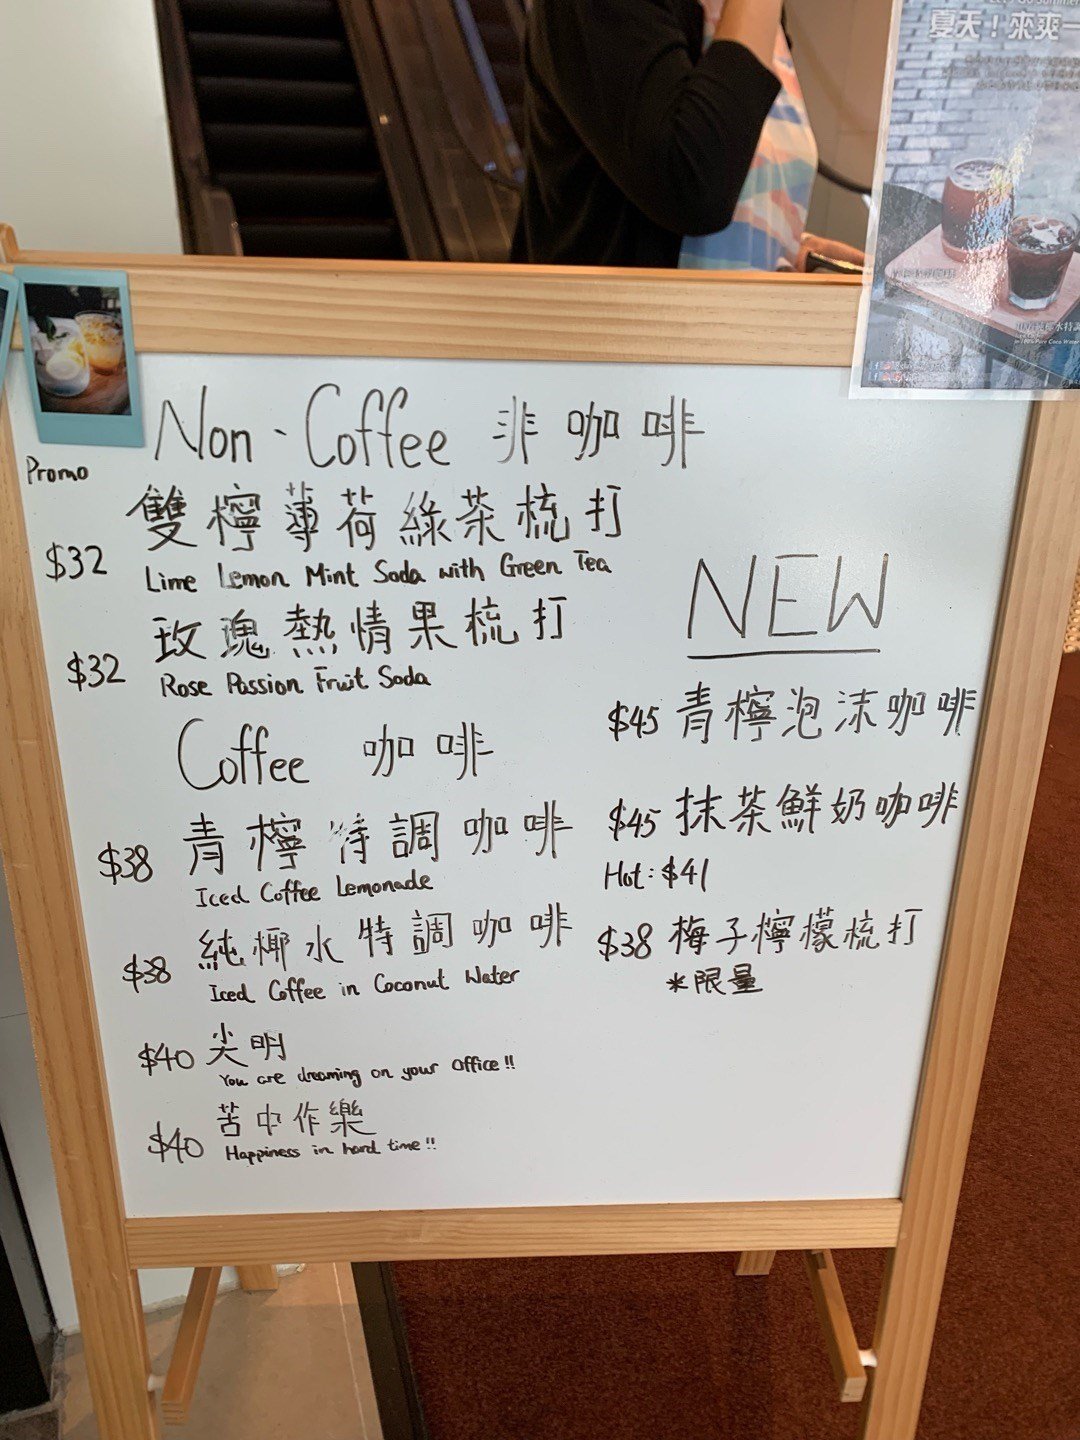 Non-Coffee 非咖啡
Promo
雙檸薄荷綠茶梳打
$32
Lime Lemon Mint Soda with Green Tea
玫瑰熱情果梳打
$32
Rose Passion Fruit Soda
Coffee 咖啡
$38 青檸特調咖啡
Iced Coffee Lemonade
$38 純椰水特調咖啡
Iced Coffee in Coconut Water
$40 尖明
You are dreaming on your office!!
$40 苦中作樂
Happiness in hard time!!
NEW
$45 青檸泡沫咖啡
$45 抹茶鮮奶咖啡
Hot: $41
$38 梅子檸檬梳打
*限量
夏天!來爽一
椰水特調
in 100% Pure Coco Water